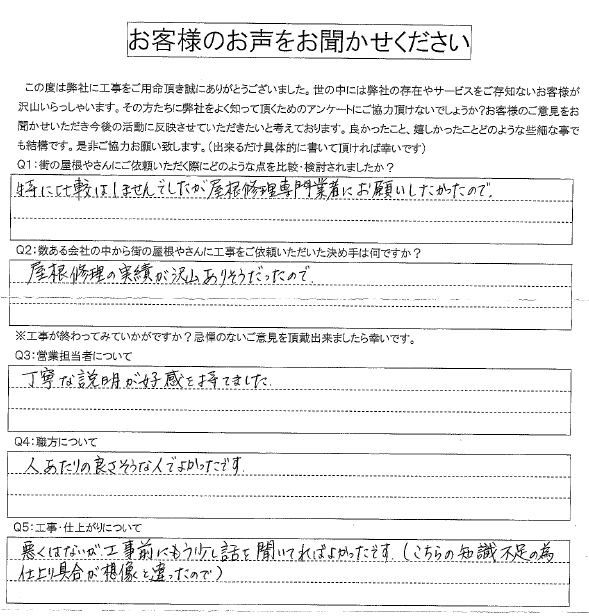 お客様のお声をお聞かせください
この度は弊社に工事をご用命頂き誠にありがとうございました。世の中には弊社の存在やサービスをご存知ないお客様が
沢山いらっしゃいます。その方たちに弊社をよく知って頂くためのアンケートにご協力頂けないでしょうか?お客様のご意見をお
聞かせいただき今後の活動に反映させていただきたいと考えております。良かったこと、嬉しかったことどのような些細な事で
も結構です。是非ご協力お願い致します。(出来るだけ具体的に書いて頂ければ幸いです)
Q1:街の屋根やさんにご依頼いただく際にどのような点を比較・検討されましたか?
特に比較はしませんでしたが屋根修理専門業者にお願いしたかったので。
Q2:数ある会社の中から街の屋根やさんに工事をご依頼いただいた決め手は何ですか?
屋根修理の実績が沢山ありそうだったので。
※工事が終わってみていかがですか?忌憚のないご意見を頂戴出来ましたら幸いです。
Q3:営業担当者について
丁寧な説明が好感を持てました。
Q4:職方について
人あたりの良さそうな人でよかったです。
Q5:工事・仕上がりについて
悪くはないが、工事前にもう少し話を聞いてればよかったです。(こちらの知識不足の為
仕上り具合が想像と違ったので)